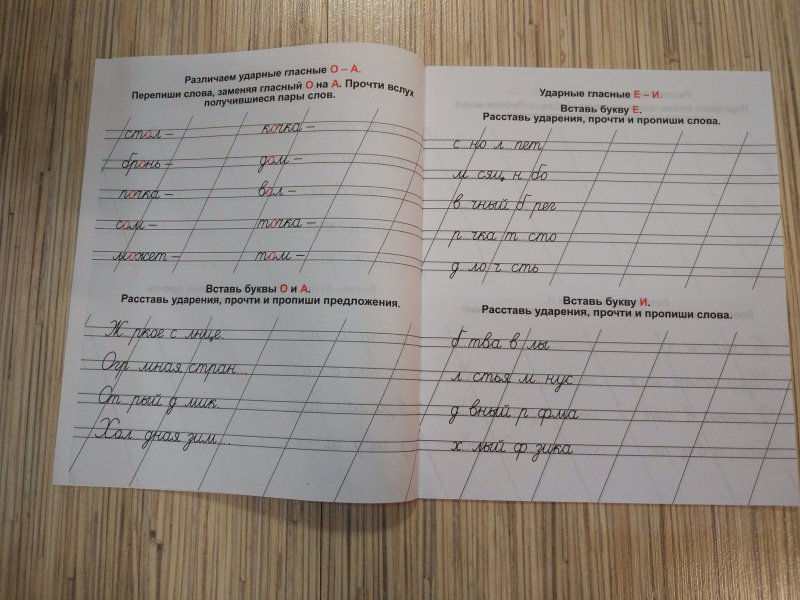 Различаем ударные гласные О – А.
Перепиши слова, заменяя гласный О на А. Прочти вслух
получившиеся пары слов.
стол –
кочка –
бронь –
дом –
почка –
вал –
сом –
точка –
может –
том –
Вставь буквы О и А.
Расставь ударения, прочти и пропиши предложения.
Ж...ркое с...лнце.
Огр...мная стран...
Ст...рый д...мик.
Хол...дная зим...
Ударные гласные Е – И.
Вставь букву Е.
Расставь ударения, прочти и пропиши слова.
с...но л...пет
м...сяц, н...бо
в...чный б...рег
р...чка т...сто
д...ло ч...сть
Вставь букву И.
Расставь ударения, прочти и пропиши слова.
б...тва в...лы
л...стья м...нус
д...вный р...фма
х...лый ф...зика